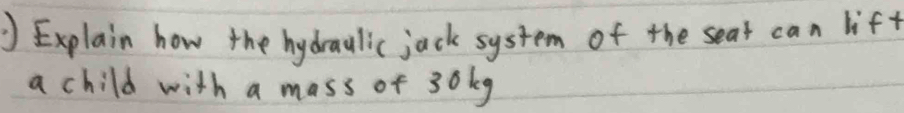 .) Explain how the hydraulic jack system of the seat can lift
a child with a mass of 30kg